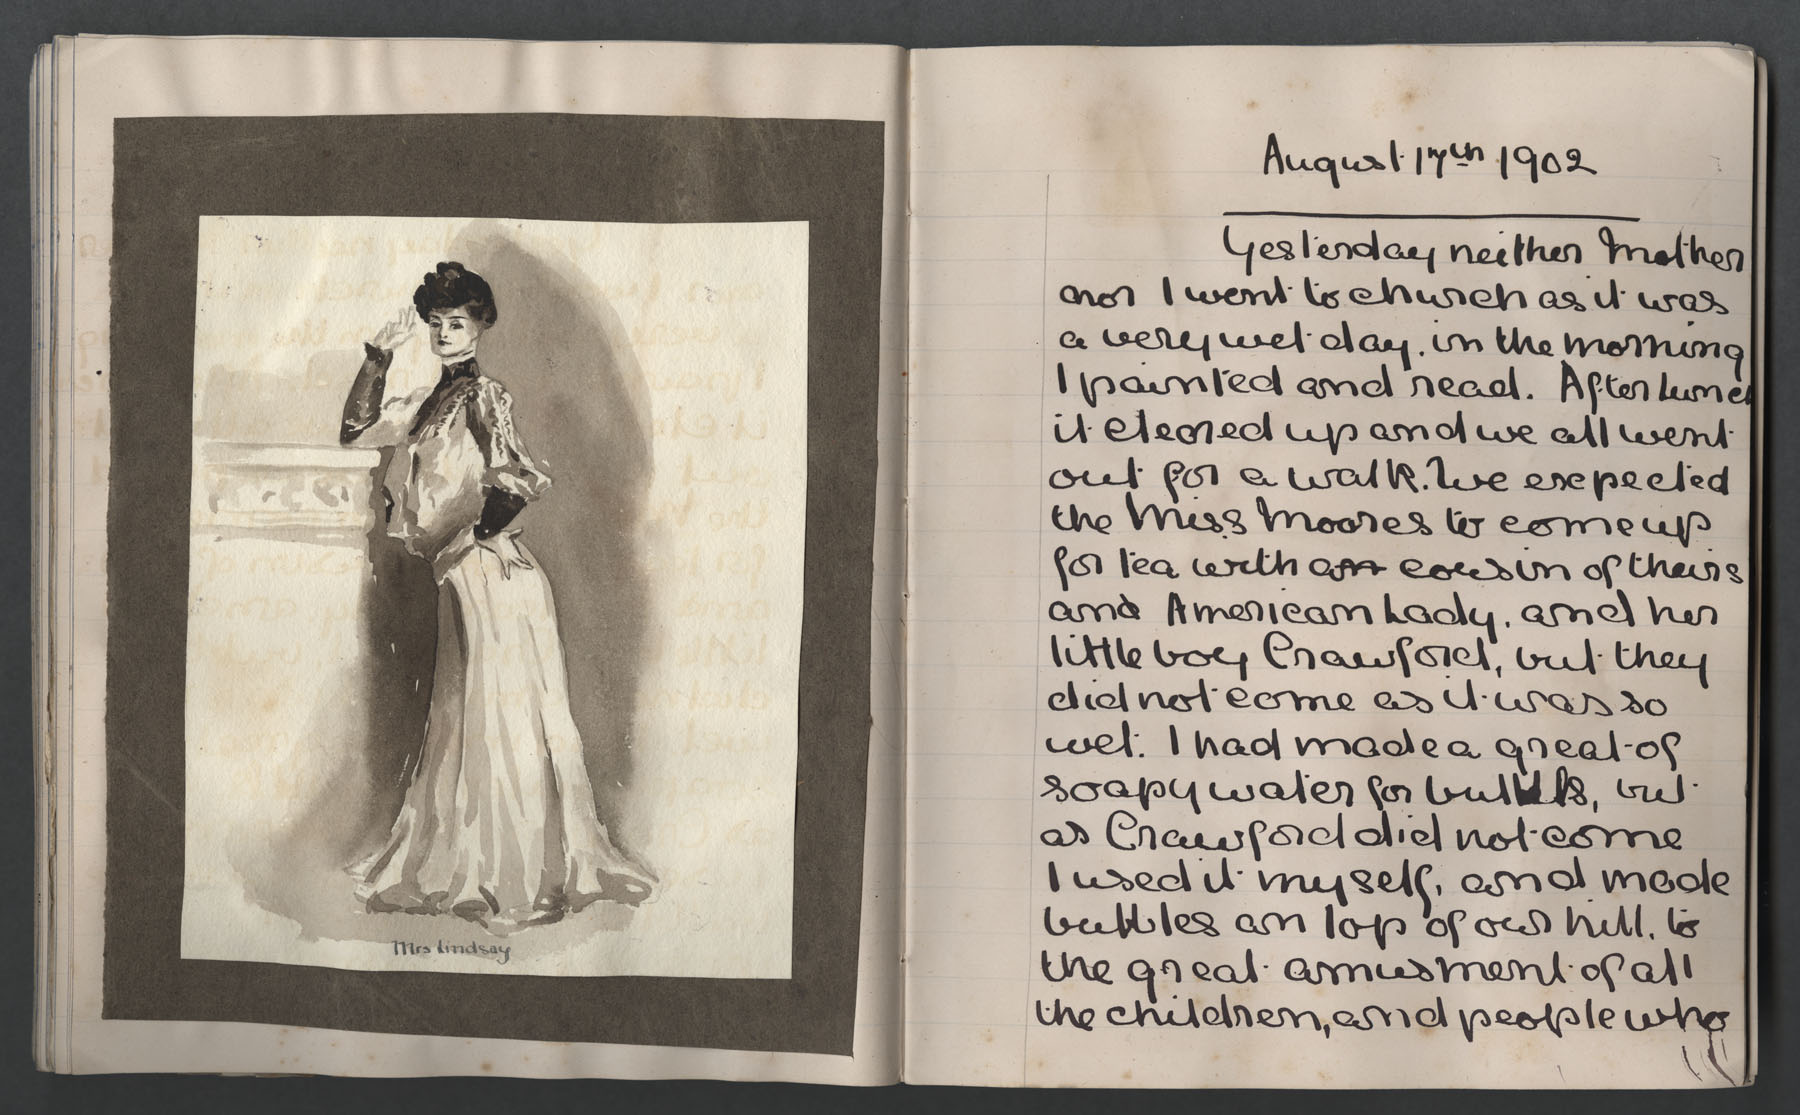 Mrs Lindsay
August 17th 1902
Yesterday neither Mother
nor I went to church as it was
a very wet day. in the morning
I painted and read. After lunch
it cleared up and we all went
out for a walk. We expected
the Miss Moores to come up
for tea with an cousin of theirs
and American Lady, and her
little boy Crawford, but they
did not come as it was so
wet. I had made a great of
soapy water for bubbls, but
as Crawford did not come
I used it myself, and made
bubbles on top of our hill, to
the great amusment of all
the children, and people who